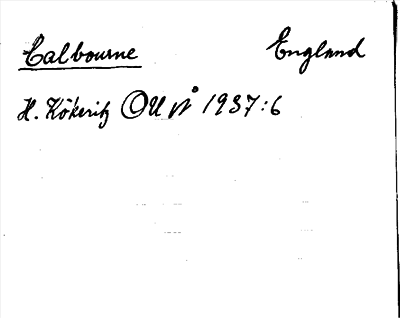 Calbourne England
H. Kökeritz UUÅ 1937:6